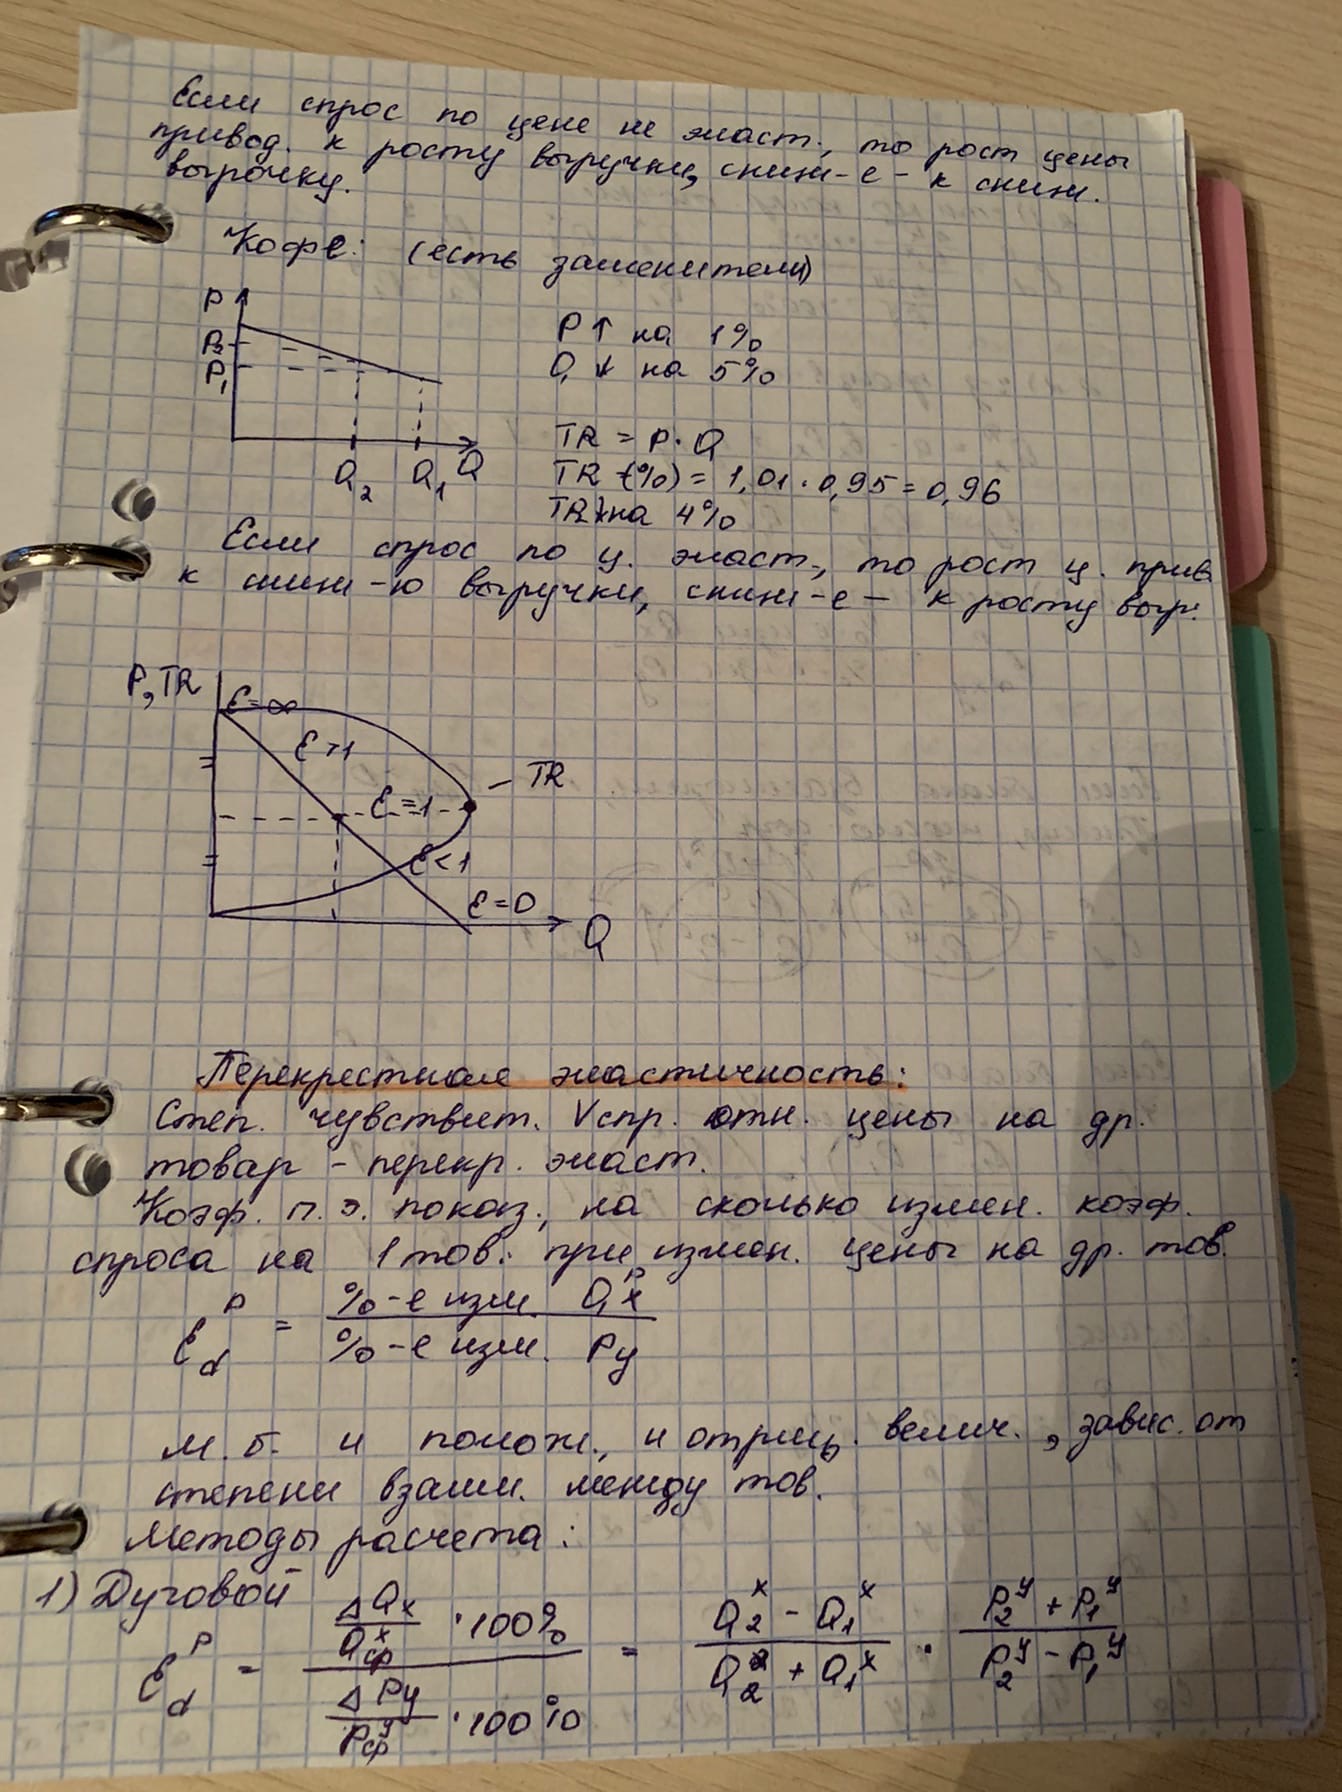 Если спрос по цене не эласт., то рост цены
привод. к росту выручки, сниж-е - к сниж.
вырочку.
Кофе: (есть заменители)
P
P₂
P₁
Q₂ Q₁ Q
P↑ на 1%
Q↓ на 5%
TR = P·Q
TR (%) = 1,01·0,95 = 0,96
TR↓ на 4%
Если спрос по ц. эласт., то рост ц. прив.
к сниж-ю выручки, сниж-е - к росту выр.
P, TR
ε=∞
ε>1
- TR
ε=1
ε<1
ε=0
Q
Перекрестная эластичность:
Степ. чувствит. Vспр. отн. цены на др.
товар - перекр. эласт.
Коэф. п. э. показ., на сколько измен. коэф.
спроса на 1 тов. при измен. цены на др. тов.
E_d^P = %-е изм Qx / %-е изм. Py
М.б. и полож., и отриц. велич., завис. от
степени взаим. между тов.
Методы расчета:
1) Дуговой
E_d^P = (ΔQx / Qср^x · 100%) / (ΔPy / Pср^y · 100%) = (Q₂^x - Q₁^x) / (Q₂^x + Q₁^x) · (P₂^y + P₁^y) / (P₂^y - P₁^y)